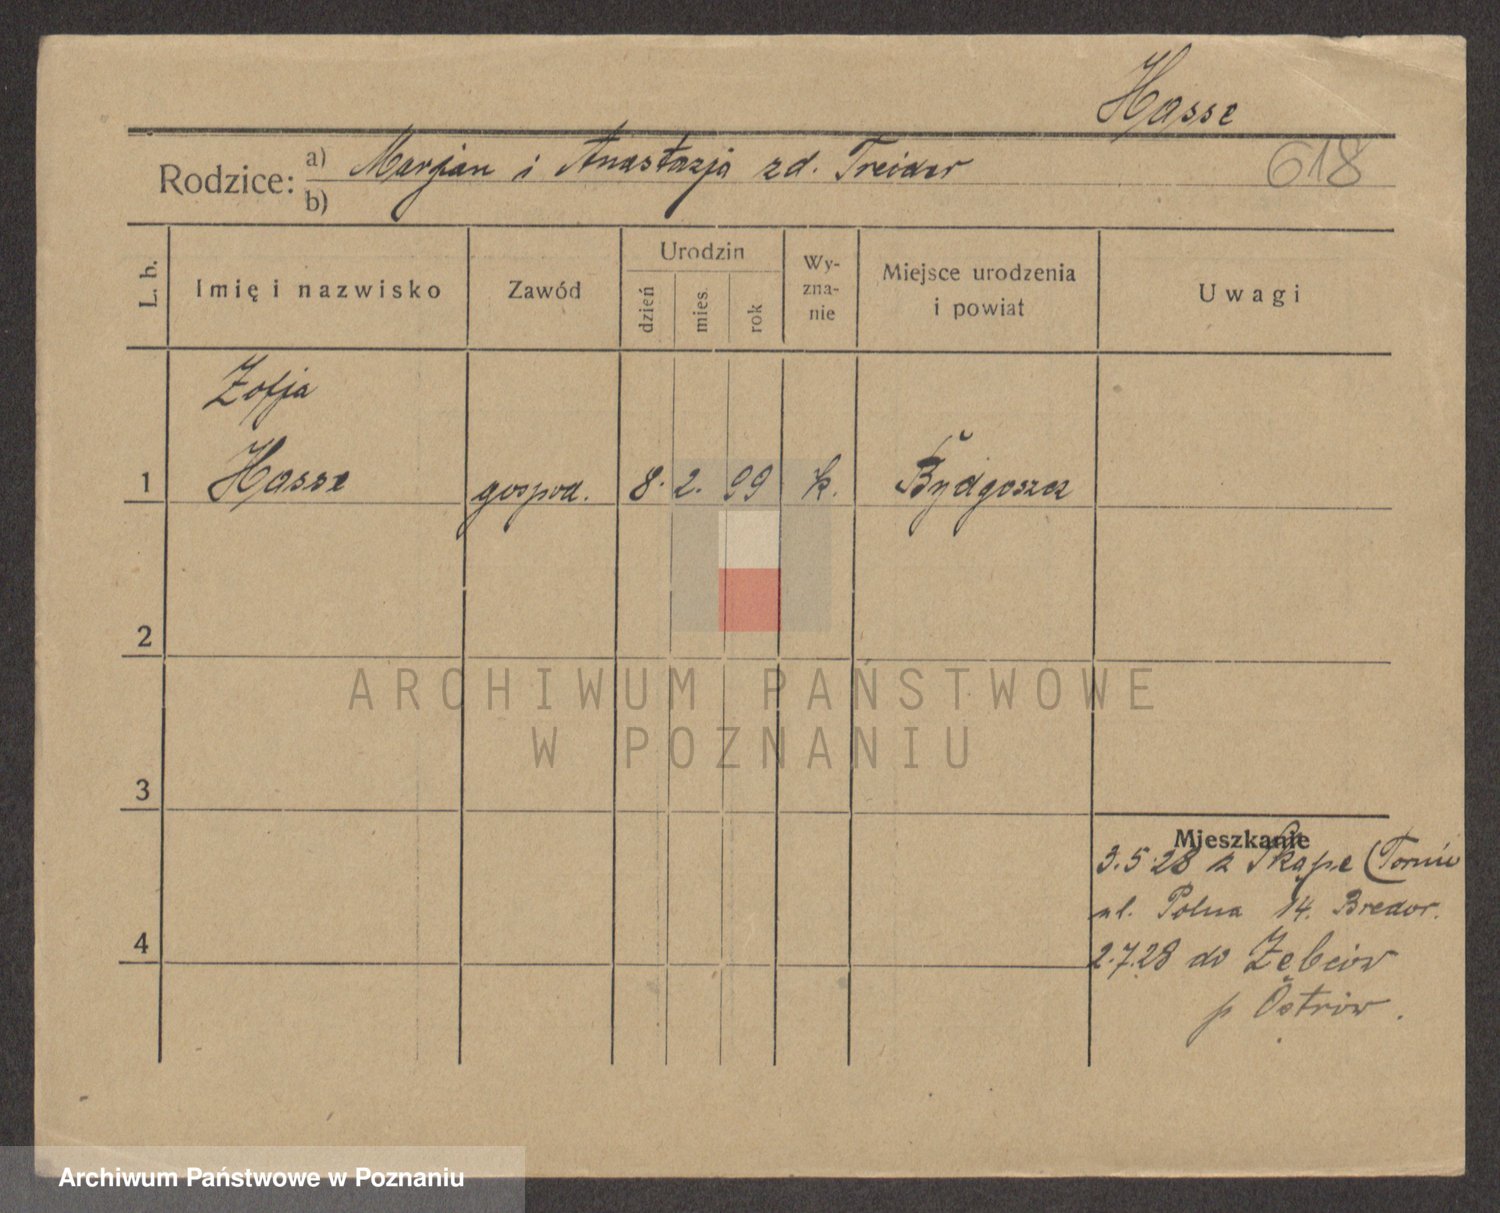 Hasse
Rodzice: a) Marjan i Anastazja zd. Treider
618
b)
L. b. Imię i nazwisko Zawód Urodzin dzień mies. rok Wy-zna-nie Miejsce urodzenia i powiat Uwagi
Zofja
1 Hasse gospod. 8. 2. 99 k. Bydgoszcz
2
ARCHIWUM PAŃSTWOWE
W POZNANIU
3
Mieszkanie
3.5.28 z Skąpe (Toruń
ul. Polna 14. Bredor.
4
2.7.28 do Zębców
p Ostrów.
Archiwum Państwowe w Poznaniu